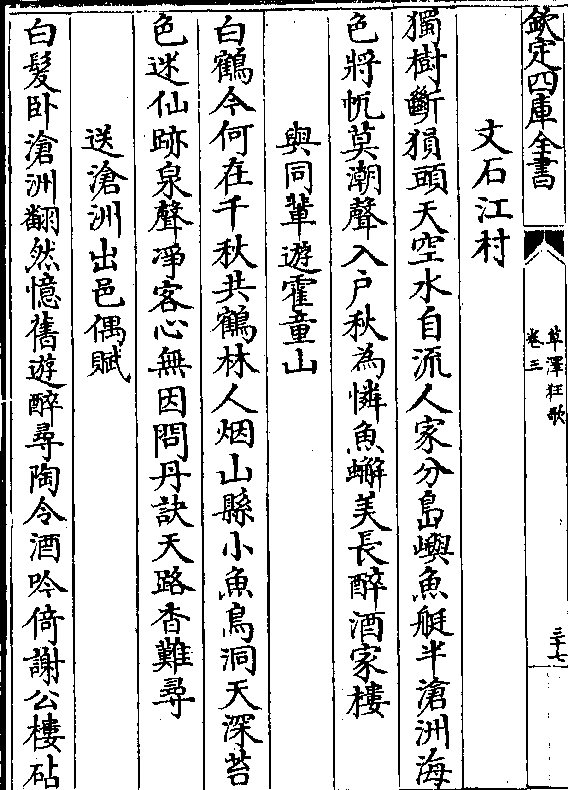 欽定四庫全書
草澤狂歌
卷三
三十七
文石江村
獨樹斷頭天空水自流人家分島嶼魚艇半滄洲海
色將帆莫潮聲入戶秋為憐魚蠏美長醉酒家樓
與同輩遊霍童山
白鶴今何在千秋共鶴林人烟山縣小魚鳥洞天深苔
色迷仙跡泉聲淨客心無因問丹訣天路杳難尋
送滄洲出邑偶賦
白髮卧滄洲翻然憶舊遊醉尋陶令酒吟倚謝公樓砧